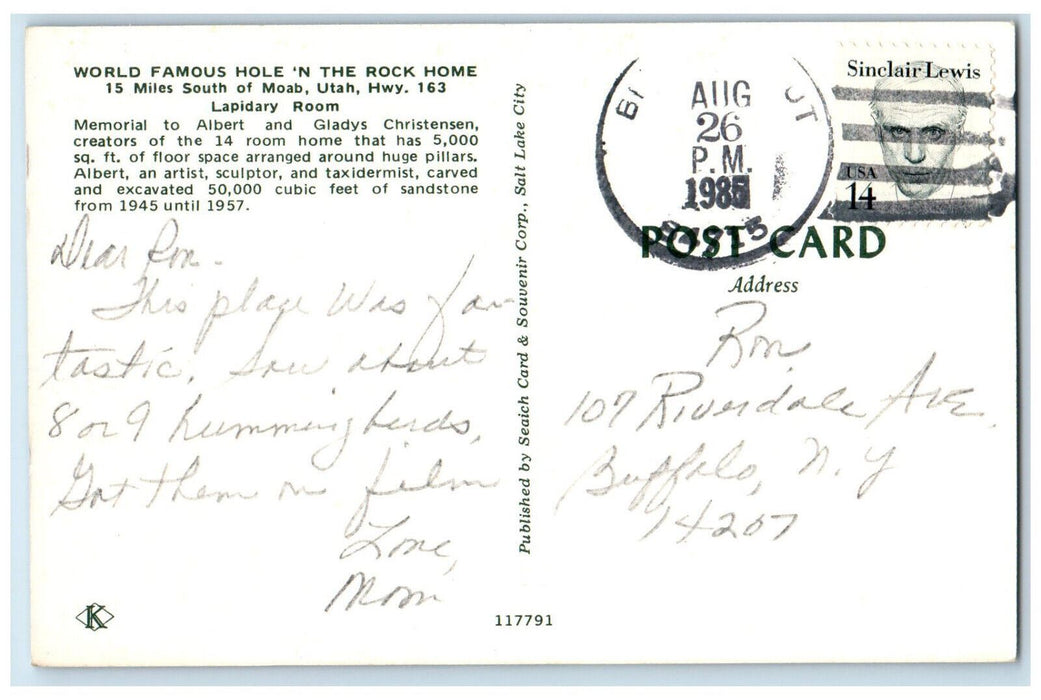 WORLD FAMOUS HOLE 'N THE ROCK HOME
15 Miles South of Moab, Utah, Hwy. 163
Lapidary Room
Memorial to Albert and Gladys Christensen,
creators of the 14 room home that has 5,000
sq. ft. of floor space arranged around huge pillars.
Albert, an artist, sculptor, and taxidermist, carved
and excavated 50,000 cubic feet of sandstone
from 1945 until 1957.
Dear Ron -
This place was fan
tastic. Saw about
8 or 9 hummingbirds.
Got them on film
Love,
Mom
K
117791
Published by Seaich Card & Souvenir Corp., Salt Lake City
AUG
26
P.M.
1985
Sinclair Lewis
USA
14
POST CARD
Address
Ron
107 Riverdale Ave.
Buffalo, N.Y
14207